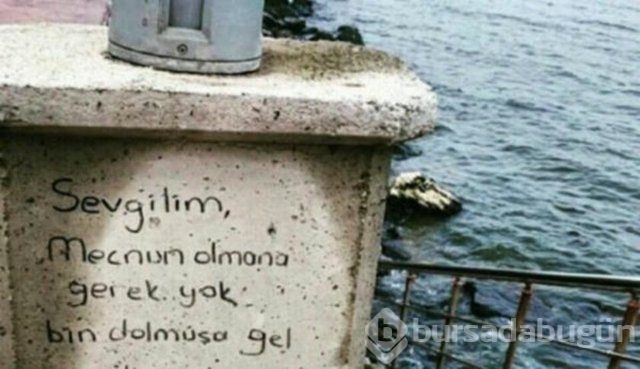 Sevgilim,
Mecnun olmana
gerek yok
bin dolmuşa gel
bursadabugün